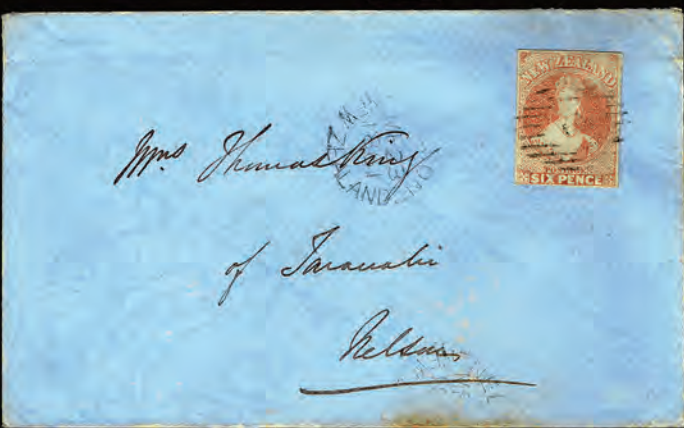 NEW ZEALAND
SIX PENCE
Mrs Thomas King
of Taranaki
Nelson